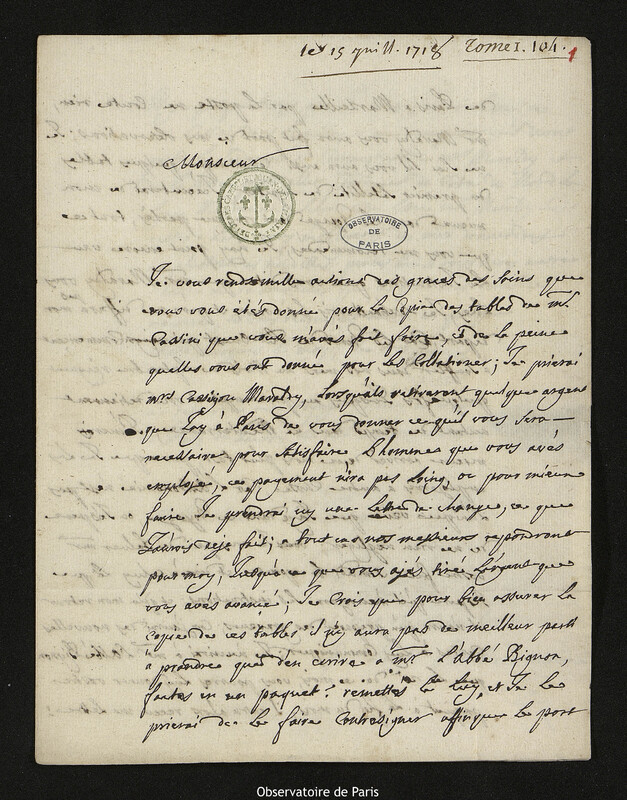 le 15 Juill. 1718 Tome I. 104.
1
Monsieur
OBSERVATOIRE
DE
PARIS
Je vous rends mille actions des graces des soins que
vous vous étés donné pour la Copie des tables de mr.
Cassini que vous m'avés fait faire, et de la peine
quelles vous ont donnée pour les Collationer; Je prierai
mrs Cassini ou Maraldy, lorsquils retireront quelque argent
que J'ay à Paris de vous donner ce qu'il vous sera
necessaire pour satisfaire L'homme que vous avés
employé, ce payement n'ira pas loing, ou pour mieux
faire Je prendrai icy une Lettre de change, ce que
J'aurois deja fait; a tout cas nos messieurs repondront
pour moy, Jusqu'a ce que vous ayés tiré L'argent que
vous avés avancé; Je Crois que pour bien assurer la
copie de ces tables il n'y aura pas de meilleur parti
à prendre que d'en ecrire a mr L'abbé Bignon,
faites en un paquet, remettés le luy, et Je le
prierai de le faire Contresigner affin que le port
Observatoire de Paris